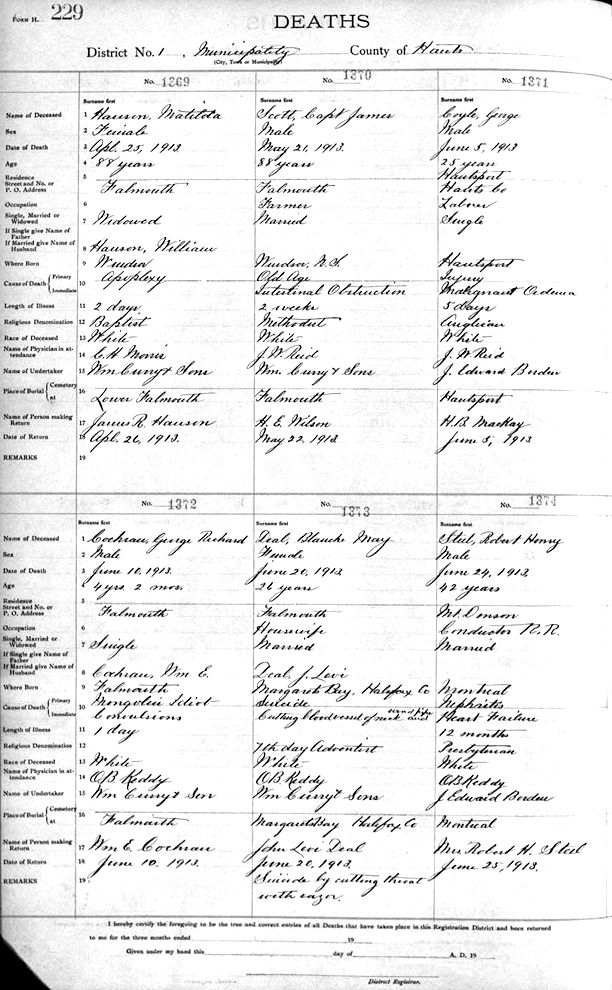 FORM H. 229
DEATHS
District No. 1, Municipality County of Hants
(City, Town or Municipality)
No. 1369 No. 1370 No. 1371
Surname first Surname first Surname first
Name of Deceased 1 Hanson, Matilda Scott, Capt James Coyle, George
Sex 2 Female Male Male
Date of Death 3 Apl. 25, 1913 May 21, 1913. June 5, 1913
Age 4 88 years 88 years 25 years
Residence Street and No. or P. O. Address 5 Falmouth Falmouth Hantsport Hants Co
Occupation 6 Farmer Laborer
Single, Married or Widowed 7 Widowed Married Single
If Single give Name of Father
If Married give Name of Husband 8 Hanson, William
Where Born 9 Windsor Windsor, N.S. Hantsport
Cause of Death Primary Immediate 10 Apoplexy Old Age Intestinal Obstruction Injury Malignant Oedema
Length of Illness 11 2 days 2 weeks 5 days
Religious Denomination 12 Baptist Methodist Anglican
Race of Deceased 13 White White White
Name of Physician in attendance 14 C. H. Morris J. W. Reid J. W Reid
Name of Undertaker 15 Wm Curry & Sons Wm Curry & Sons J. Edward Borden
Place of Burial Cemetery at 16 Lower Falmouth Falmouth Hantsport
Name of Person making Return 17 James R. Hanson H. E. Wilson H. B. MacKay
Date of Return 18 Apl. 26, 1913. May 22, 1913 June 5, 1913
REMARKS 19
No. 1372 No. 1373 No. 1374
Surname first Surname first Surname first
Name of Deceased 1 Cochran, George Richard Deal, Blanche May Steel, Robert Henry
Sex 2 Male Female Male
Date of Death 3 June 10, 1913. June 20, 1913. June 24, 1913.
Age 4 4 yrs. 2 mos. 26 years 42 years
Residence Street and No. or P. O. Address 5 Falmouth Falmouth Mt. Denson
Occupation 6 Housewife Conductor R. R.
Single, Married or Widowed 7 Single Married Married
If Single give Name of Father
If Married give Name of Husband 8 Cochran, Wm E. Deal, J. Levi
Where Born 9 Falmouth Margarets Bay, Halifax Co Montreal
Cause of Death Primary Immediate 10 Mongolian Idiot Convulsions Suicide Cutting bloodvessel of neck and wind pipe Nephritis Heart Failure
Length of Illness 11 1 day 12 months
Religious Denomination 12 7th day Adventist Presbyterian
Race of Deceased 13 White White White
Name of Physician in attendance 14 O B Keddy O B Keddy O B Keddy
Name of Undertaker 15 Wm Curry & Son Wm Curry & Sons J Edward Borden
Place of Burial Cemetery at 16 Falmouth Margarets Bay Halifax Co Montreal
Name of Person making Return 17 Wm E. Cochran John Levi Deal Mrs. Robert H. Steel
Date of Return 18 June 10, 1913. June 20, 1913. June 25, 1913.
REMARKS 19 Suicide by cutting throat
with razor.
I hereby certify the foregoing to be the true and correct entries of all Deaths that have taken place in this Registration District and been returned
to me for the three months ended 19
Given under my hand this day of A. D. 19
District Registrar.